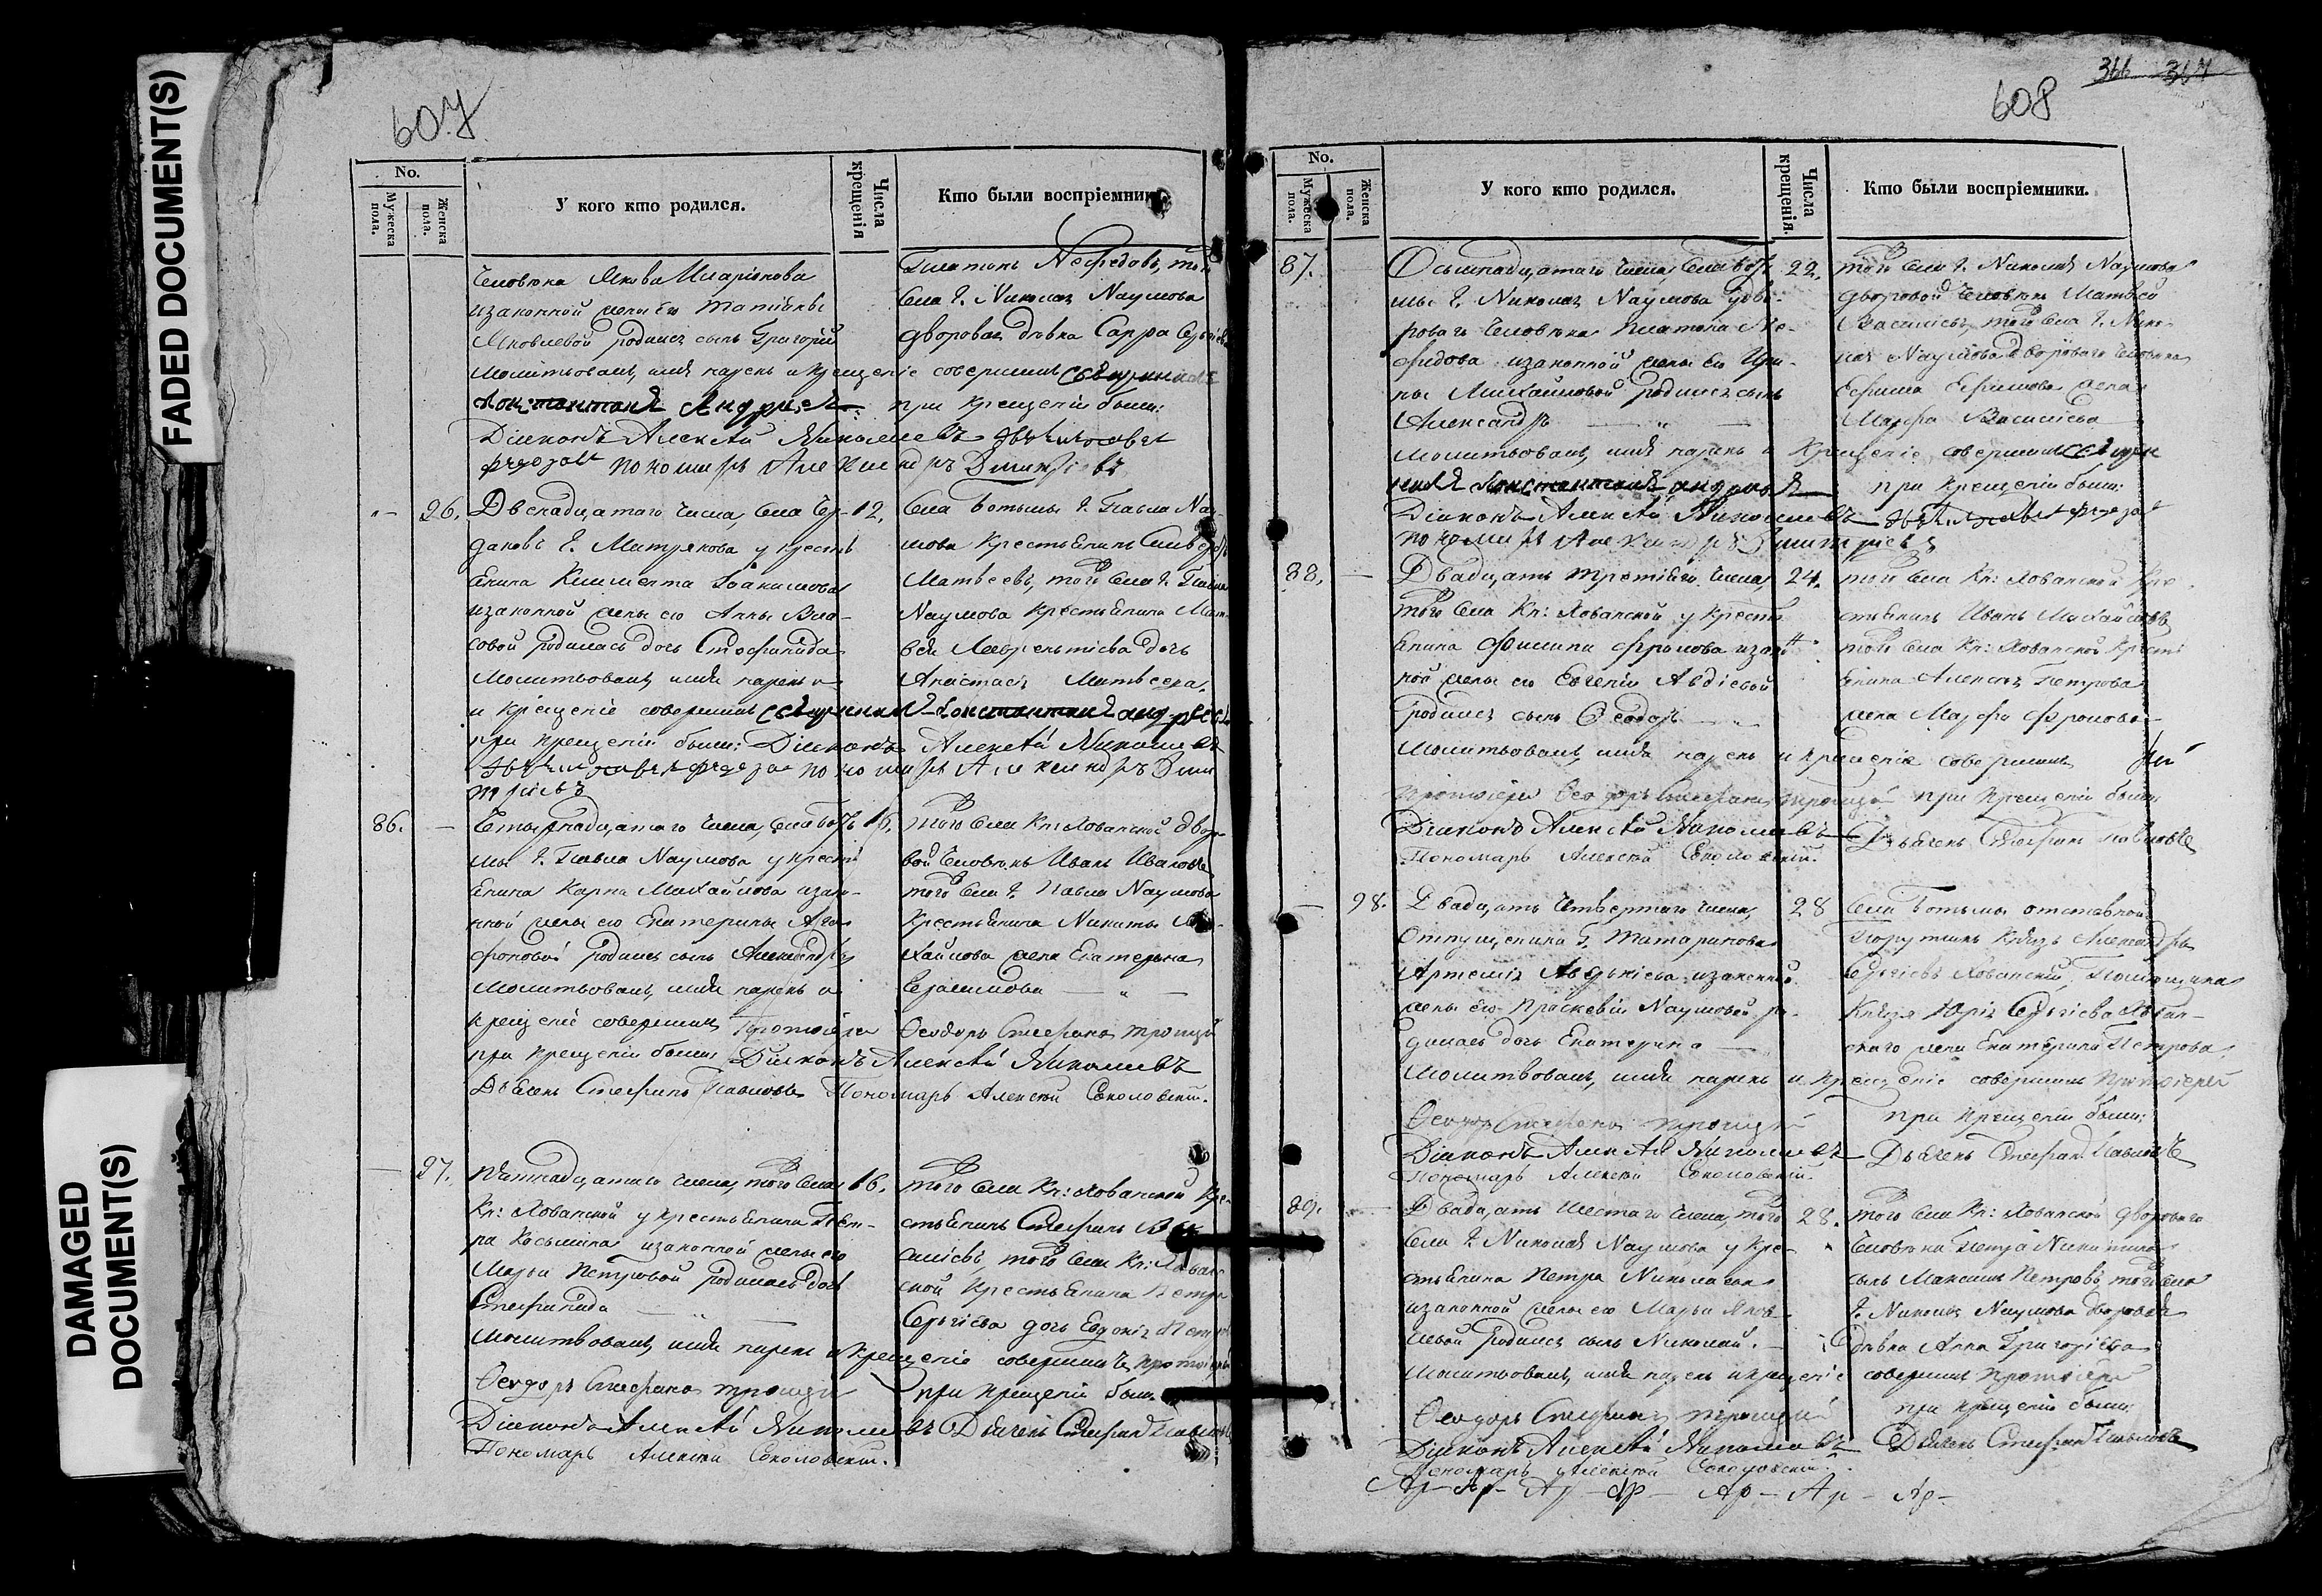 FADED DOCUMENT(S)
DAMAGED
DOCUMENT(S)
607
No.
Мужеска
пола.
Женска
пола.
У кого кто родился.
Числа
крещенія
Кто были воспріемники
человѣка Якова Иларіонова
изаконной жены его Татіяны
Яковлевой родился сынъ Григорій
молитвовалъ, имя нарекъ и крещеніе совершилъ священникъ
Андреевъ при крещеніи были:
Діаконъ Алексѣй Николаевъ
пономарь Александръ Дмитріевъ
Платонъ Нефедовъ, того
села Г. Николая Наумова
дворовая дѣвка Сарра
26.
Двенадцатаго числа, села
12.
данова Г. Митрякова у кресть
янина Климента Іоакимова
изаконной жены его Анны Вла-
совой родилась дочь Стефанида
молитвовалъ, имя нарекъ и
и крещеніе совершилъ священникъ Константинъ Андреевъ
при крещеніи были: Діаконъ Алексѣй Николаевъ
пономарь Александръ Дми
тріевъ
села Ботьмы Г. Павла На-
умова крестьянинъ
Матвеевъ, того села Г. Павла
Наумова крестьянина Мат
вея Лаврентіева дочь
Анастасія Матвеева.
86.
Четырнадцатаго числа, села Боть
16.
мы Г. Павла Наумова у кресть
янина Карпа Михайлова изако-
нной жены его Екатерины Ага
фоновой родился сынъ Александръ
молитвовалъ, имя нарекъ и
крещеніе совершилъ Протоіерей Ѳеодоръ Стефановъ Троицкій
при крещеніи были Діаконъ Алексѣй Николаевъ
Дьячекъ Стефанъ Павловъ Пономарь Алексѣй Соколовскій.
того села Кн: Хованской дворо
вой человѣкъ Иванъ Ивановъ
того села Г. Павла Наумова
крестьянина Никиты Ми-
хайлова жена Екатерина
Герасимова
27.
Пятнадцатаго числа, того села
16.
Кн: Хованской у крестьянина Пет-
ра Косьмина изаконной жены его
Марьи Петровой родилась дочь
Стефанида
молитвовалъ, имя нарекъ и крещеніе совершилъ Протоіерей
Ѳеодоръ Стефановъ Троицкій при крещеніи были
Діаконъ Алексѣй Николаевъ Дьячекъ Стефанъ Павловъ
Пономарь Алексѣй Соколовскій.
того села Кн: Хованской кре-
стьянинъ Стефанъ Ва
силіевъ, того села Кн: Хован
ской крестьянина Петра
Сергіева дочь Евдокія Петрова
366 367
608
No.
Мужеска
пола.
Женска
пола.
У кого кто родился.
Числа
крещенія.
Кто были воспріемники.
87.
Осьмнадцатаго числа, села Боть
22.
мы Г. Николая Наумова у дво-
роваго человѣка Платона Не-
федова изаконной жены его Ири-
ны Михайловой родился сынъ
Александръ
молитвовалъ, имя нарекъ и крещеніе совершилъ священ
никъ Константинъ Андреевъ при крещеніи были:
Діаконъ Алексѣй Николаевъ
пономарь Александръ Дмитріевъ
того села Г. Николая Наумова
дворовой человѣкъ Матвей
Васильевъ, того села Г. Нико-
лая Наумова двороваго человѣка
Ефима Ефимова жена
Марфа Васильева
88.
Двадцать третьяго числа,
24.
того села Кн: Хованской у кресть
янина Филипа Фролова изако
ной жены его Евгеніи Авдіевой
родился сынъ Ѳеодоръ
молитвовалъ, имя нарекъ и крещеніе совершилъ
Протоіерей Ѳеодоръ Стефановъ Троицкій при крещеніи были
Діаконъ Алексѣй Николаевъ Дьячекъ Стефанъ Павловъ
Пономарь Алексѣй Соколовскій.
того села Кн: Хованской кре
стьянинъ Иванъ Михайловъ
того села Кн: Хованской кресть
янина Алексея Петрова
жена Марфа Фролова
28.
Двадцать четвертаго числа,
28
Отпущеника Г. Татаринова
Артемія Авдѣіева изаконной
жены его Праскевіи Наумовой ро-
дилась дочь Екатерина
молитвовалъ, имя нарекъ и крещеніе совершилъ Протоіерей
Ѳеодоръ Стефановъ Троицкій при крещеніи были:
Діаконъ Алексѣй Николаевъ Дьячекъ Стефанъ Павловъ
Пономарь Алексѣй Соколовскій.
села Ботьмы отставной
порутчикъ Князь Александръ
Сергіевъ Хованскій, Помещика
Князя Юрія Сергіева Хован-
скаго жена Екатерина Петрова.
89.
Двадцать шестаго числа, того
28.
села Г. Николая Наумова у кре-
стьянина Петра Николаева
изаконной жены его Марьи Яков-
левой родился сынъ Николай.
молитвовалъ, имя нарекъ и крещеніе совершилъ Протоіерей
Ѳеодоръ Стефановъ Троицкій при крещеніи были
Діаконъ Алексѣй Николаевъ Дьячекъ Стефанъ Павловъ
Пономарь Алексѣй Соколовскій.
того села Кн: Хованской двороваго
человѣка Петра Никитина
сынъ Максимъ Петровъ, того села
Г. Николая Наумова дворовая
дѣвка Анна Григоріева
Ар - Ар - Ар - Ар - Ар - Ар - Ар -